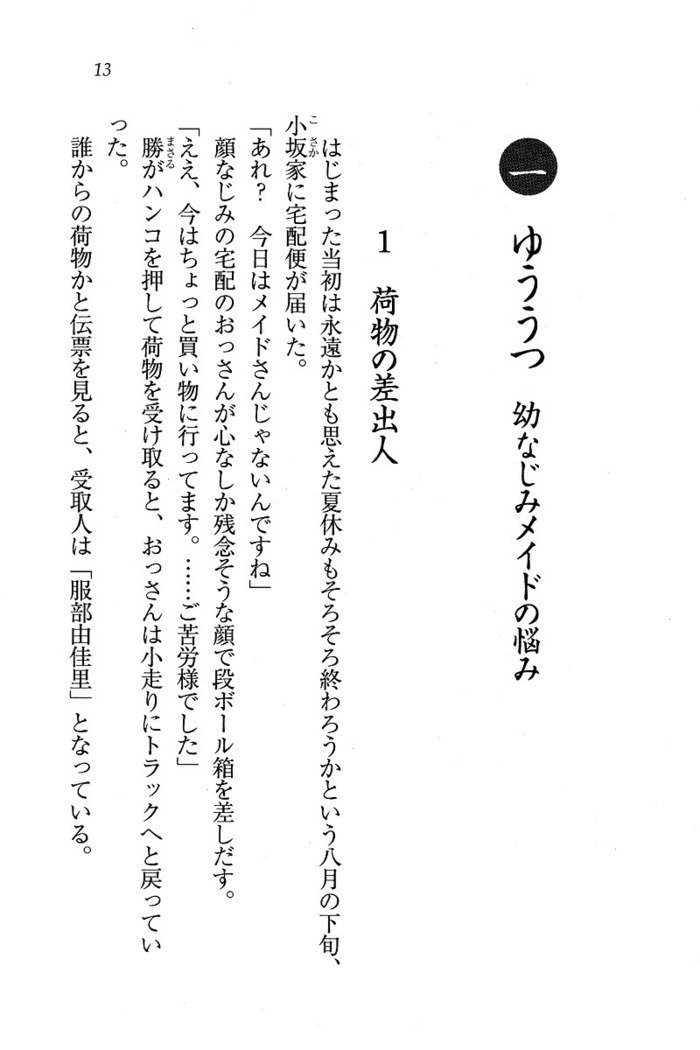 13
一 ゆううつ 幼なじみメイドの悩み
1 荷物の差出人
はじまった当初は永遠かとも思えた夏休みもそろそろ終わろうかという八月の下旬、
小坂家に宅配便が届いた。
こさか
「あれ？　今日はメイドさんじゃないんですね」
顔なじみの宅配のおっさんが心なしか残念そうな顔で段ボール箱を差しだす。
「ええ、今はちょっと買い物に行ってます。……ご苦労様でした」
勝がハンコを押して荷物を受け取ると、おっさんは小走りにトラックへと戻ってい
まさる
った。
誰からの荷物かと伝票を見ると、受取人は「服部由佳里」となっている。